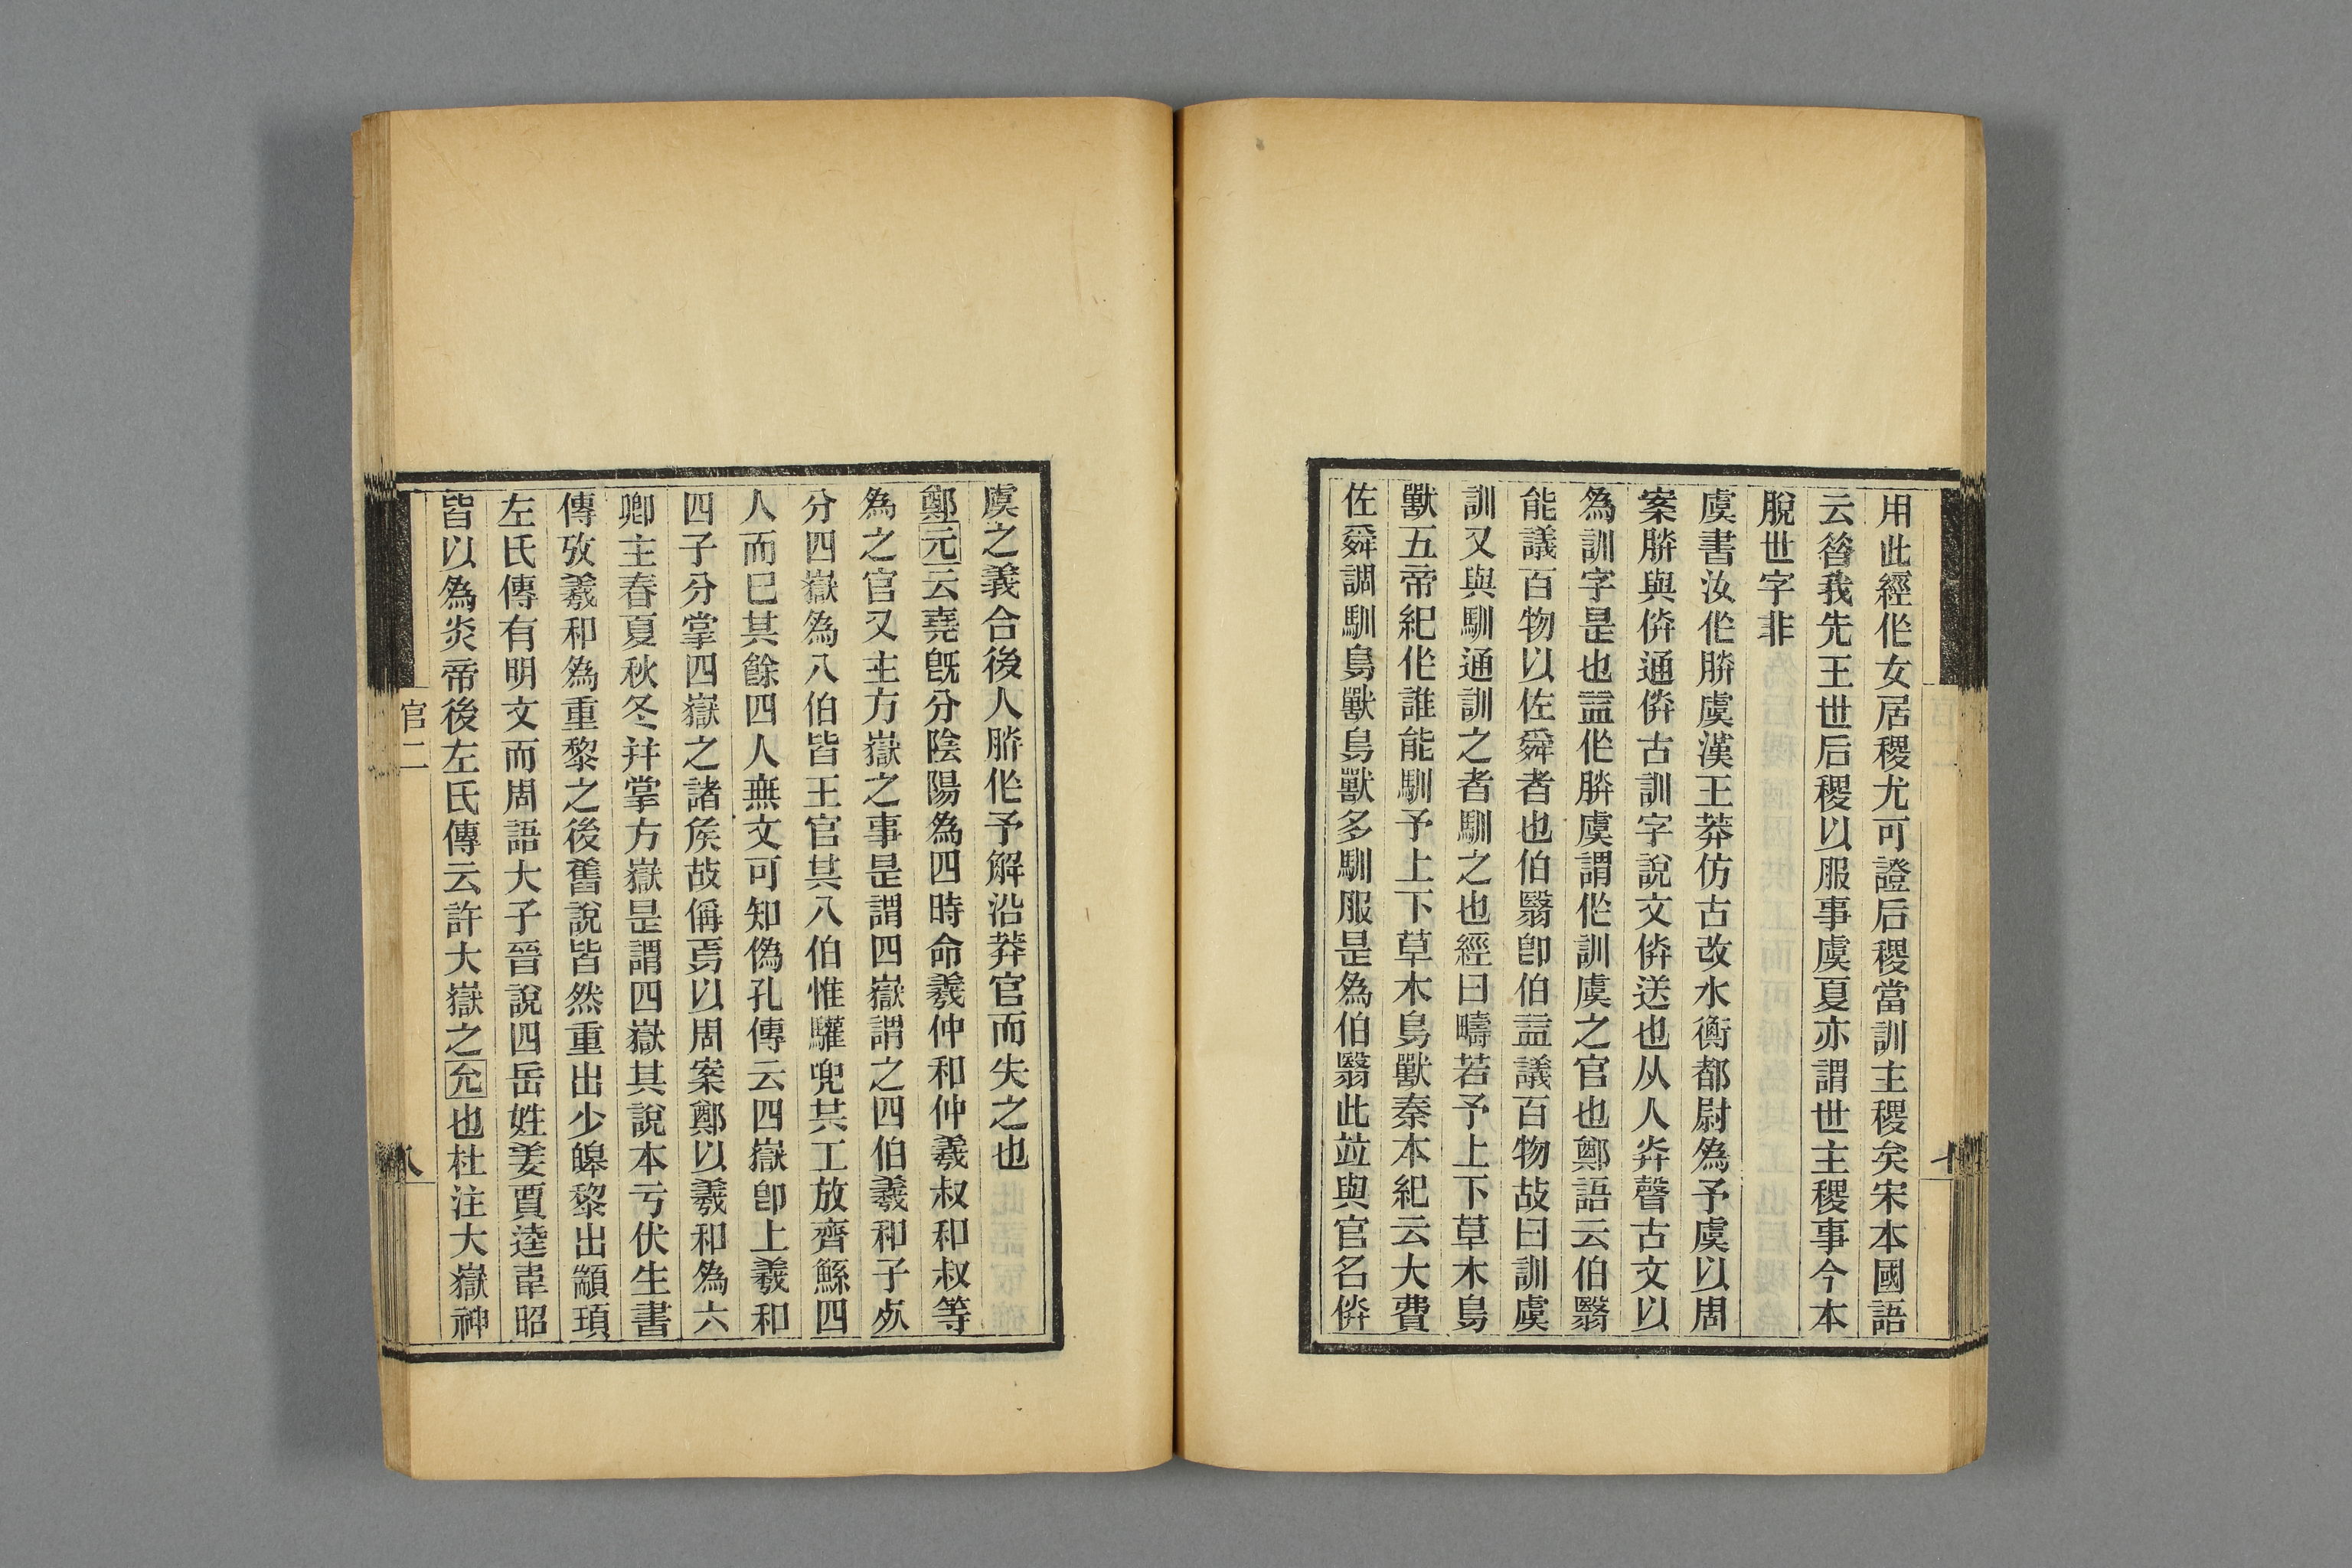 用此經作女居稷尤可證后稷當訓主稷矣宋本國語
云昝我先王世后稷以服事虞夏亦謂世主稷事今本
脫世字非
虞書汝作朕虞漢王莽仿古改水衡都尉為予虞以周
案朕與倂通倂古訓字說文倂送也从人灷聲古文以
為訓字是也葢作朕虞謂作訓虞之官也鄭語云伯翳
能議百物以佐舜者也伯翳卽伯益議百物故曰訓虞
訓又與馴通訓之者馴之也經曰疇若予上下草木鳥
獸五帝紀作誰能馴予上下草木鳥獸秦本紀云大費
佐舜調馴鳥獸鳥獸多馴服是為伯翳此竝與官名倂
虞之義合後人朕作予解沿莽官而失之也
鄭元云堯旣分陰陽為四時命羲仲和仲羲叔和叔等
為之官又主方嶽之事是謂四嶽謂之四伯羲和子𣦸
分四嶽為八伯皆王官其八伯惟驩兜共工放齊鯀四
人而已其餘四人無文可知偽孔傳云四嶽卽上羲和
四子分掌四嶽之諸矦故偁焉以周案鄭以羲和為六
卿主春夏秋冬幷掌方嶽是謂四嶽其說本亏伏生書
傳攷羲和為重黎之後舊說皆然重出少皞黎出顓頊
左氏傳有明文而周語大子晉說四岳姓姜賈逵韋昭
皆以為炎帝後左氏傳云許大嶽之允也杜注大嶽神
官二
八